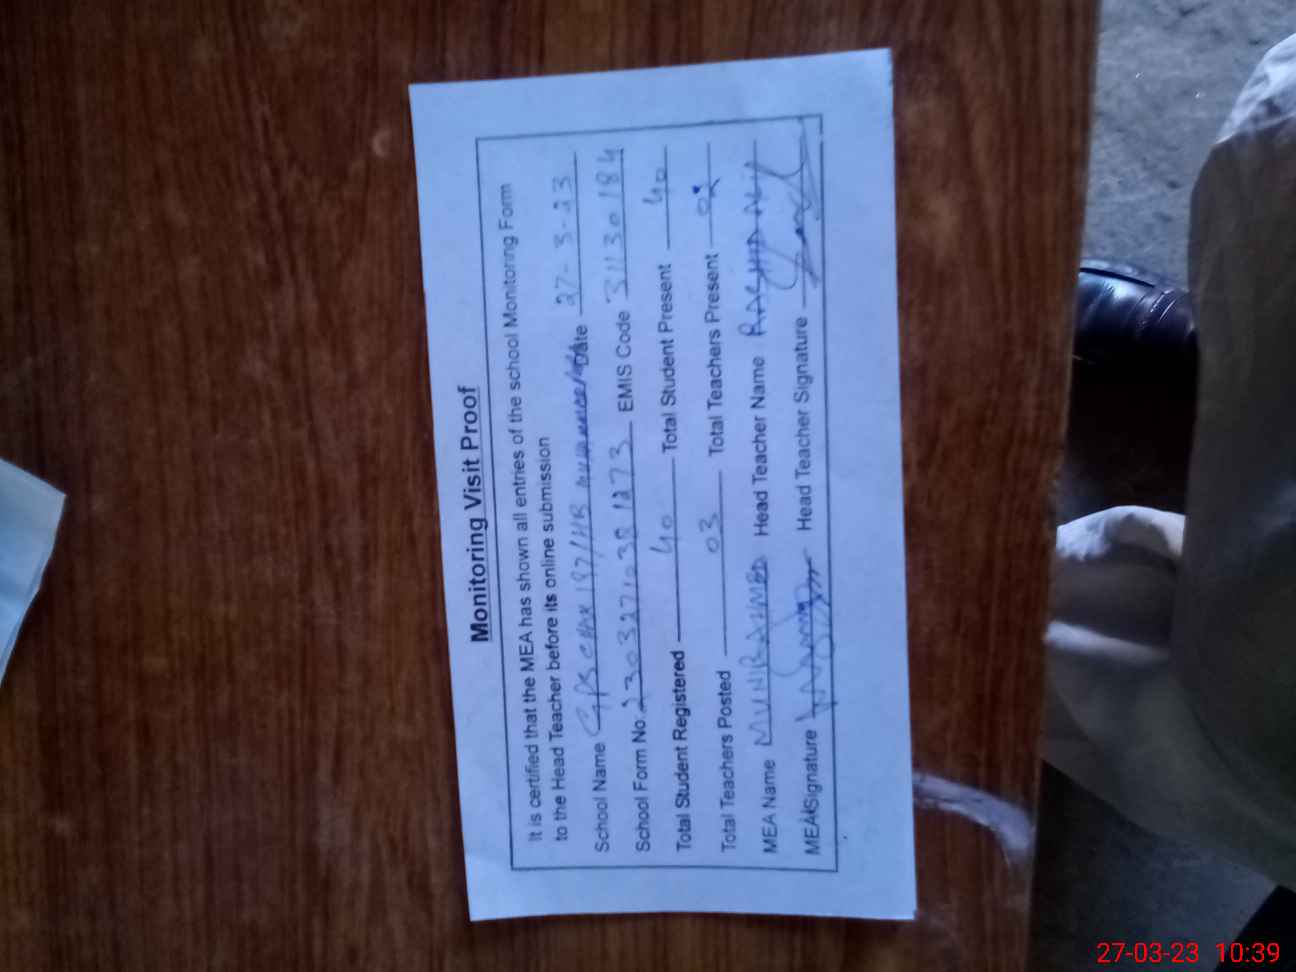 Monitoring Visit Proof
It is certified that the MEA has shown all entries of the school Monitoring Form
to the Head Teacher before its online submission
School Name GPS CHAK 197/HB Date 27-3-23
School Form No. 2303271038 1273 EMIS Code 31130184
Total Student Registered 40 Total Student Present 40
Total Teachers Posted 03 Total Teachers Present
MEA Name MUNIR AHMED Head Teacher Name RASHID ALI
MEA Signature Head Teacher Signature
27-03-23 10:39